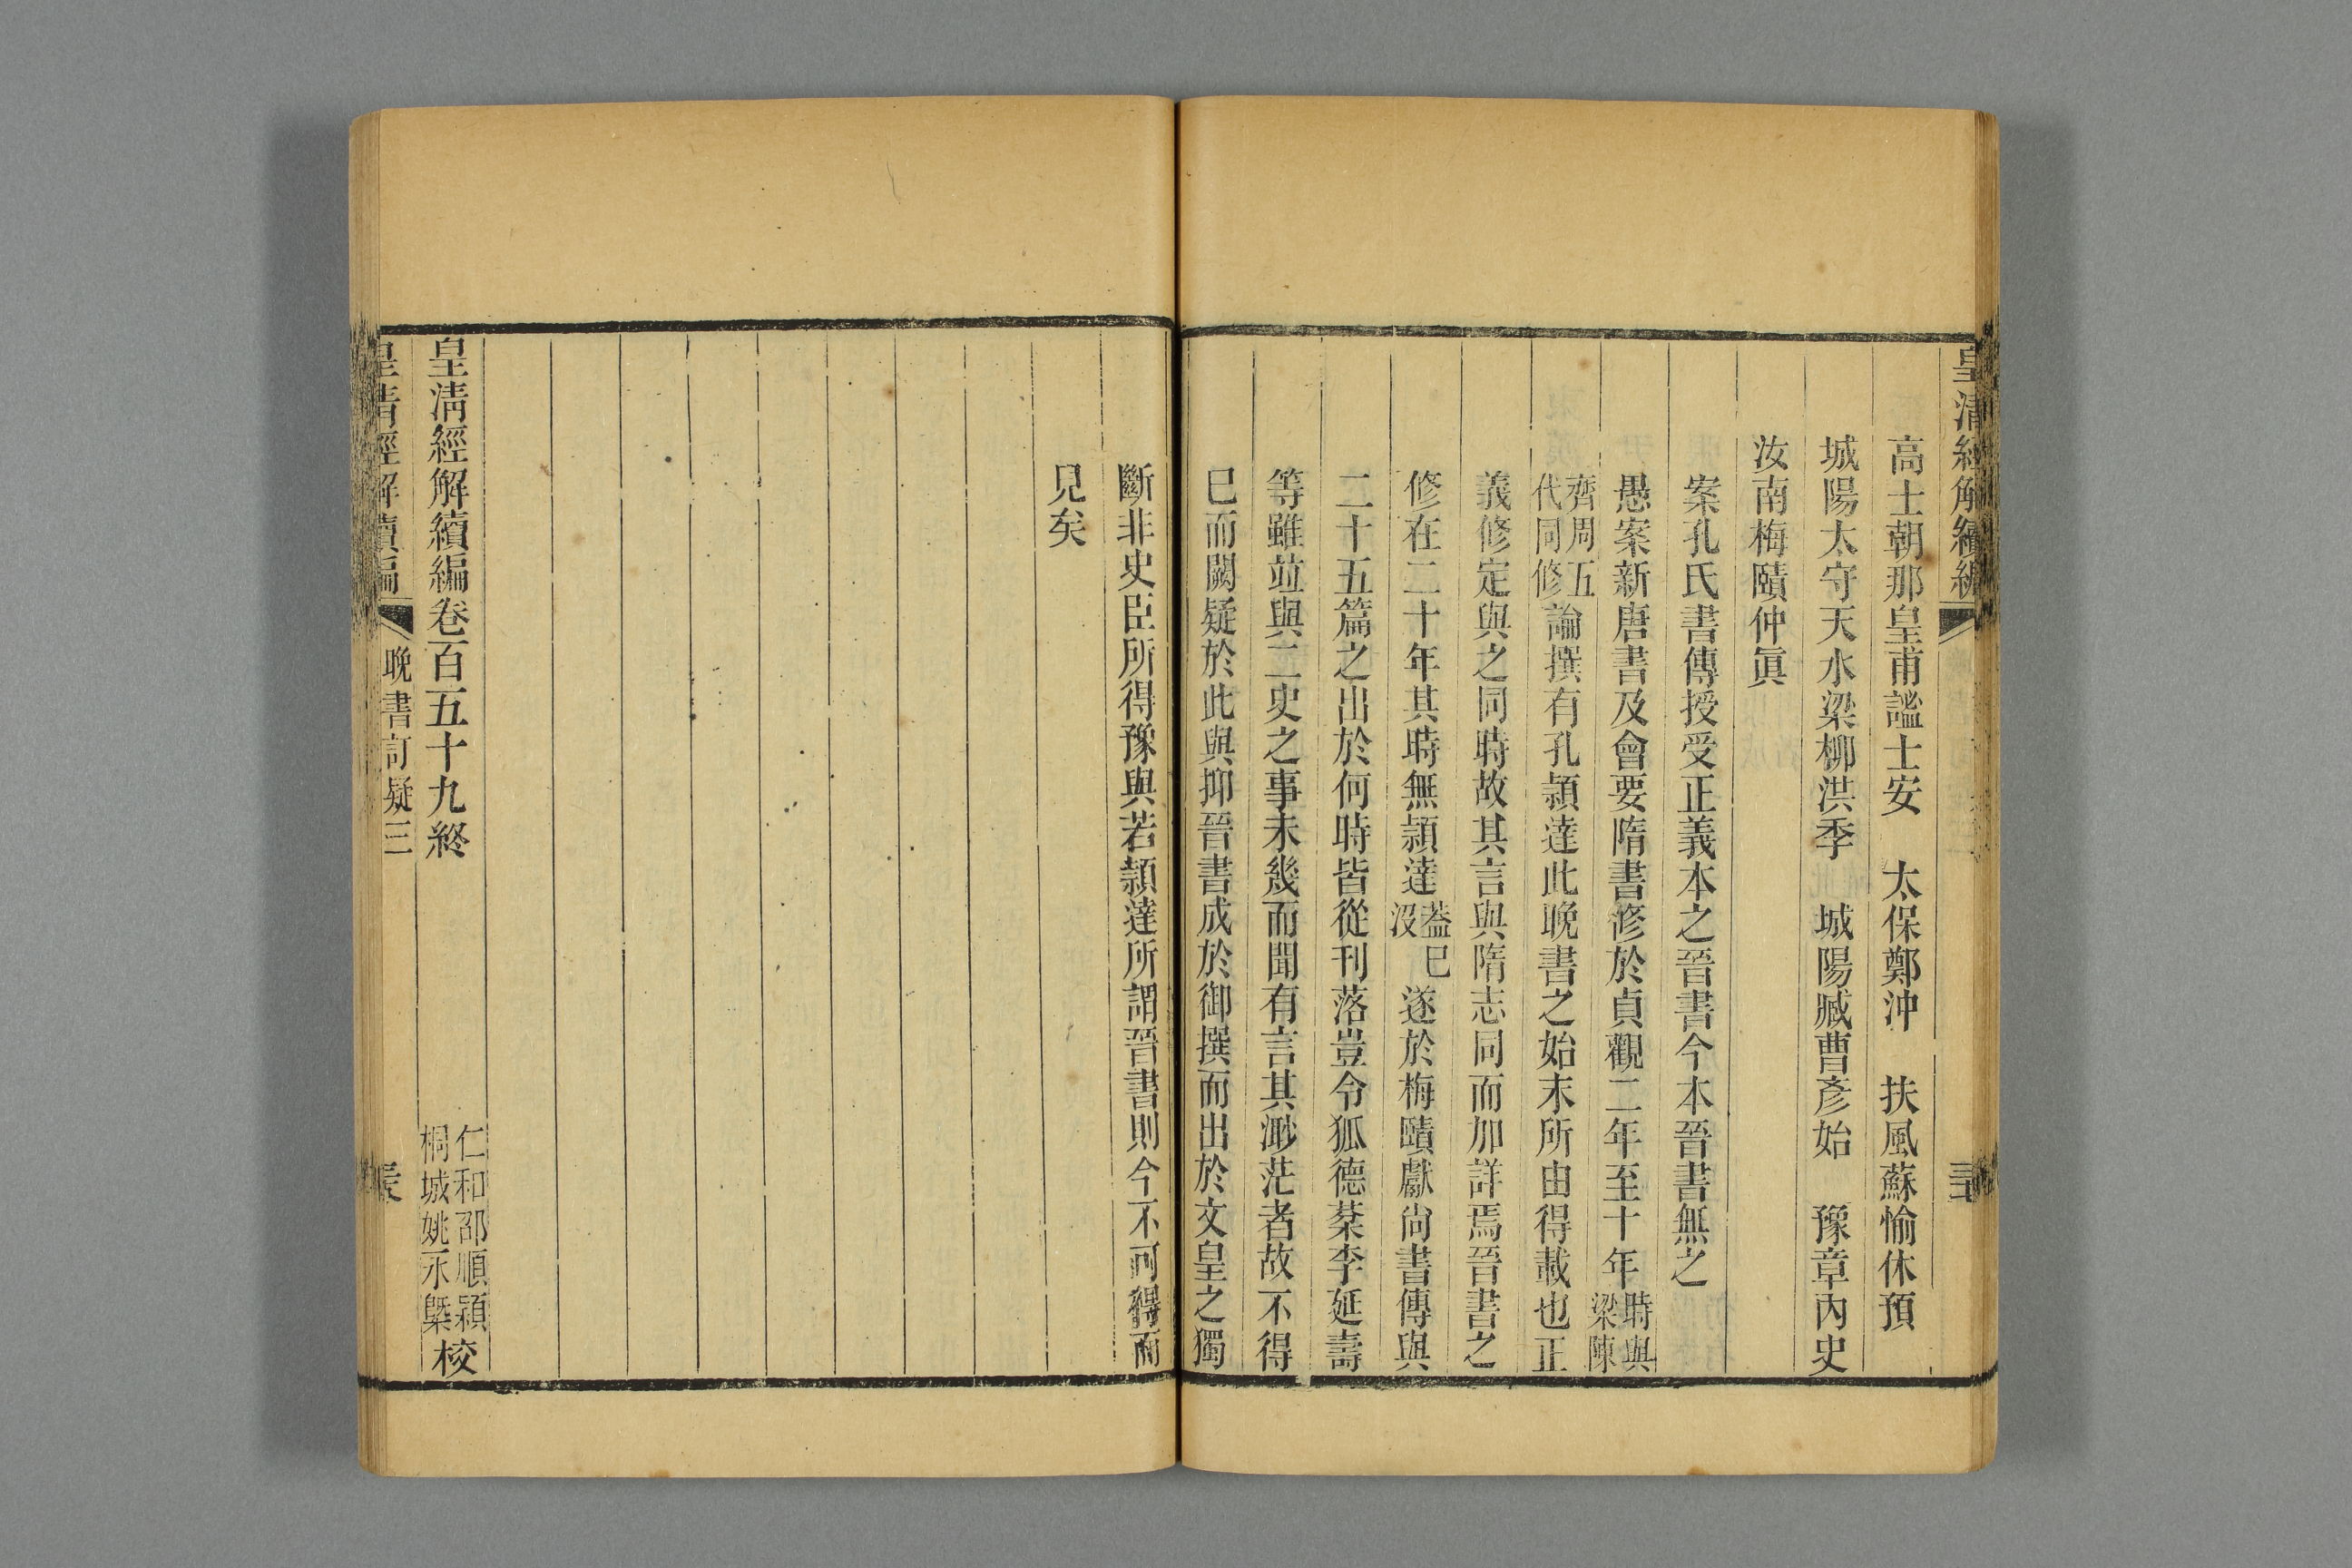 皇清經解續編
高士朝那皇甫謐士安　太保鄭沖　扶風蘇愉休預
城陽太守天水梁柳洪季　城陽臧曹彥始　豫章內史
汝南梅賾仲眞
案孔氏書傳授受正義本之晉書今本晉書無之
愚案新唐書及會要隋書修於貞觀二年至十年時與梁陳
齊周五代同修論撰有孔穎達此晚書之始末所由得載也正
義修定與之同時故其言與隋志同而加詳焉晉書之
修在二十年其時無穎達葢巳沒遂於梅賾獻尙書傳與
二十五篇之出於何時皆從刊落豈令狐德棻李延壽
等雖竝與二史之事未幾而聞有言其渺茫者故不得
巳而闕疑於此與抑晉書成於御撰而出於文皇之獨
斷非史臣所得豫與若穎達所謂晉書則今不可得而
見矣
皇清經解續編卷百五十九終
仁和邵順穎
桐城姚永㮣校
皇清經解續編　晚書訂疑三